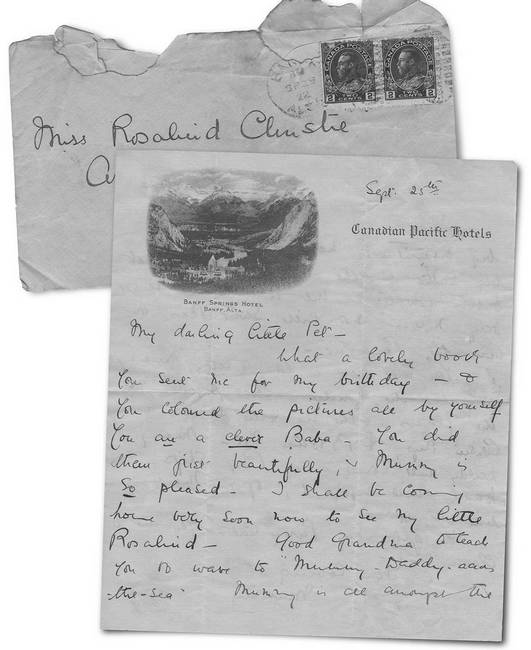 CANADA POSTAGE
CANADA POSTAGE
2 CENTS 2
2 TWO CENTS 2
Miss Rosalind Christie
Sept. 25th
Canadian Pacific Hotels
BANFF SPRINGS HOTEL
BANFF, ALTA.
My darling little Pet -
What a lovely book
You sent me for my birthday - &
You coloured the pictures all by yourself
You are a clever Baba - You did
them just beautifully, & Mummy is
So pleased - I shall be coming
home very soon now to see my little
Rosalind - Good Grandma to teach
You to wave to "Mummy - Daddy - acros
-the-sea" Mummy is all amongst the